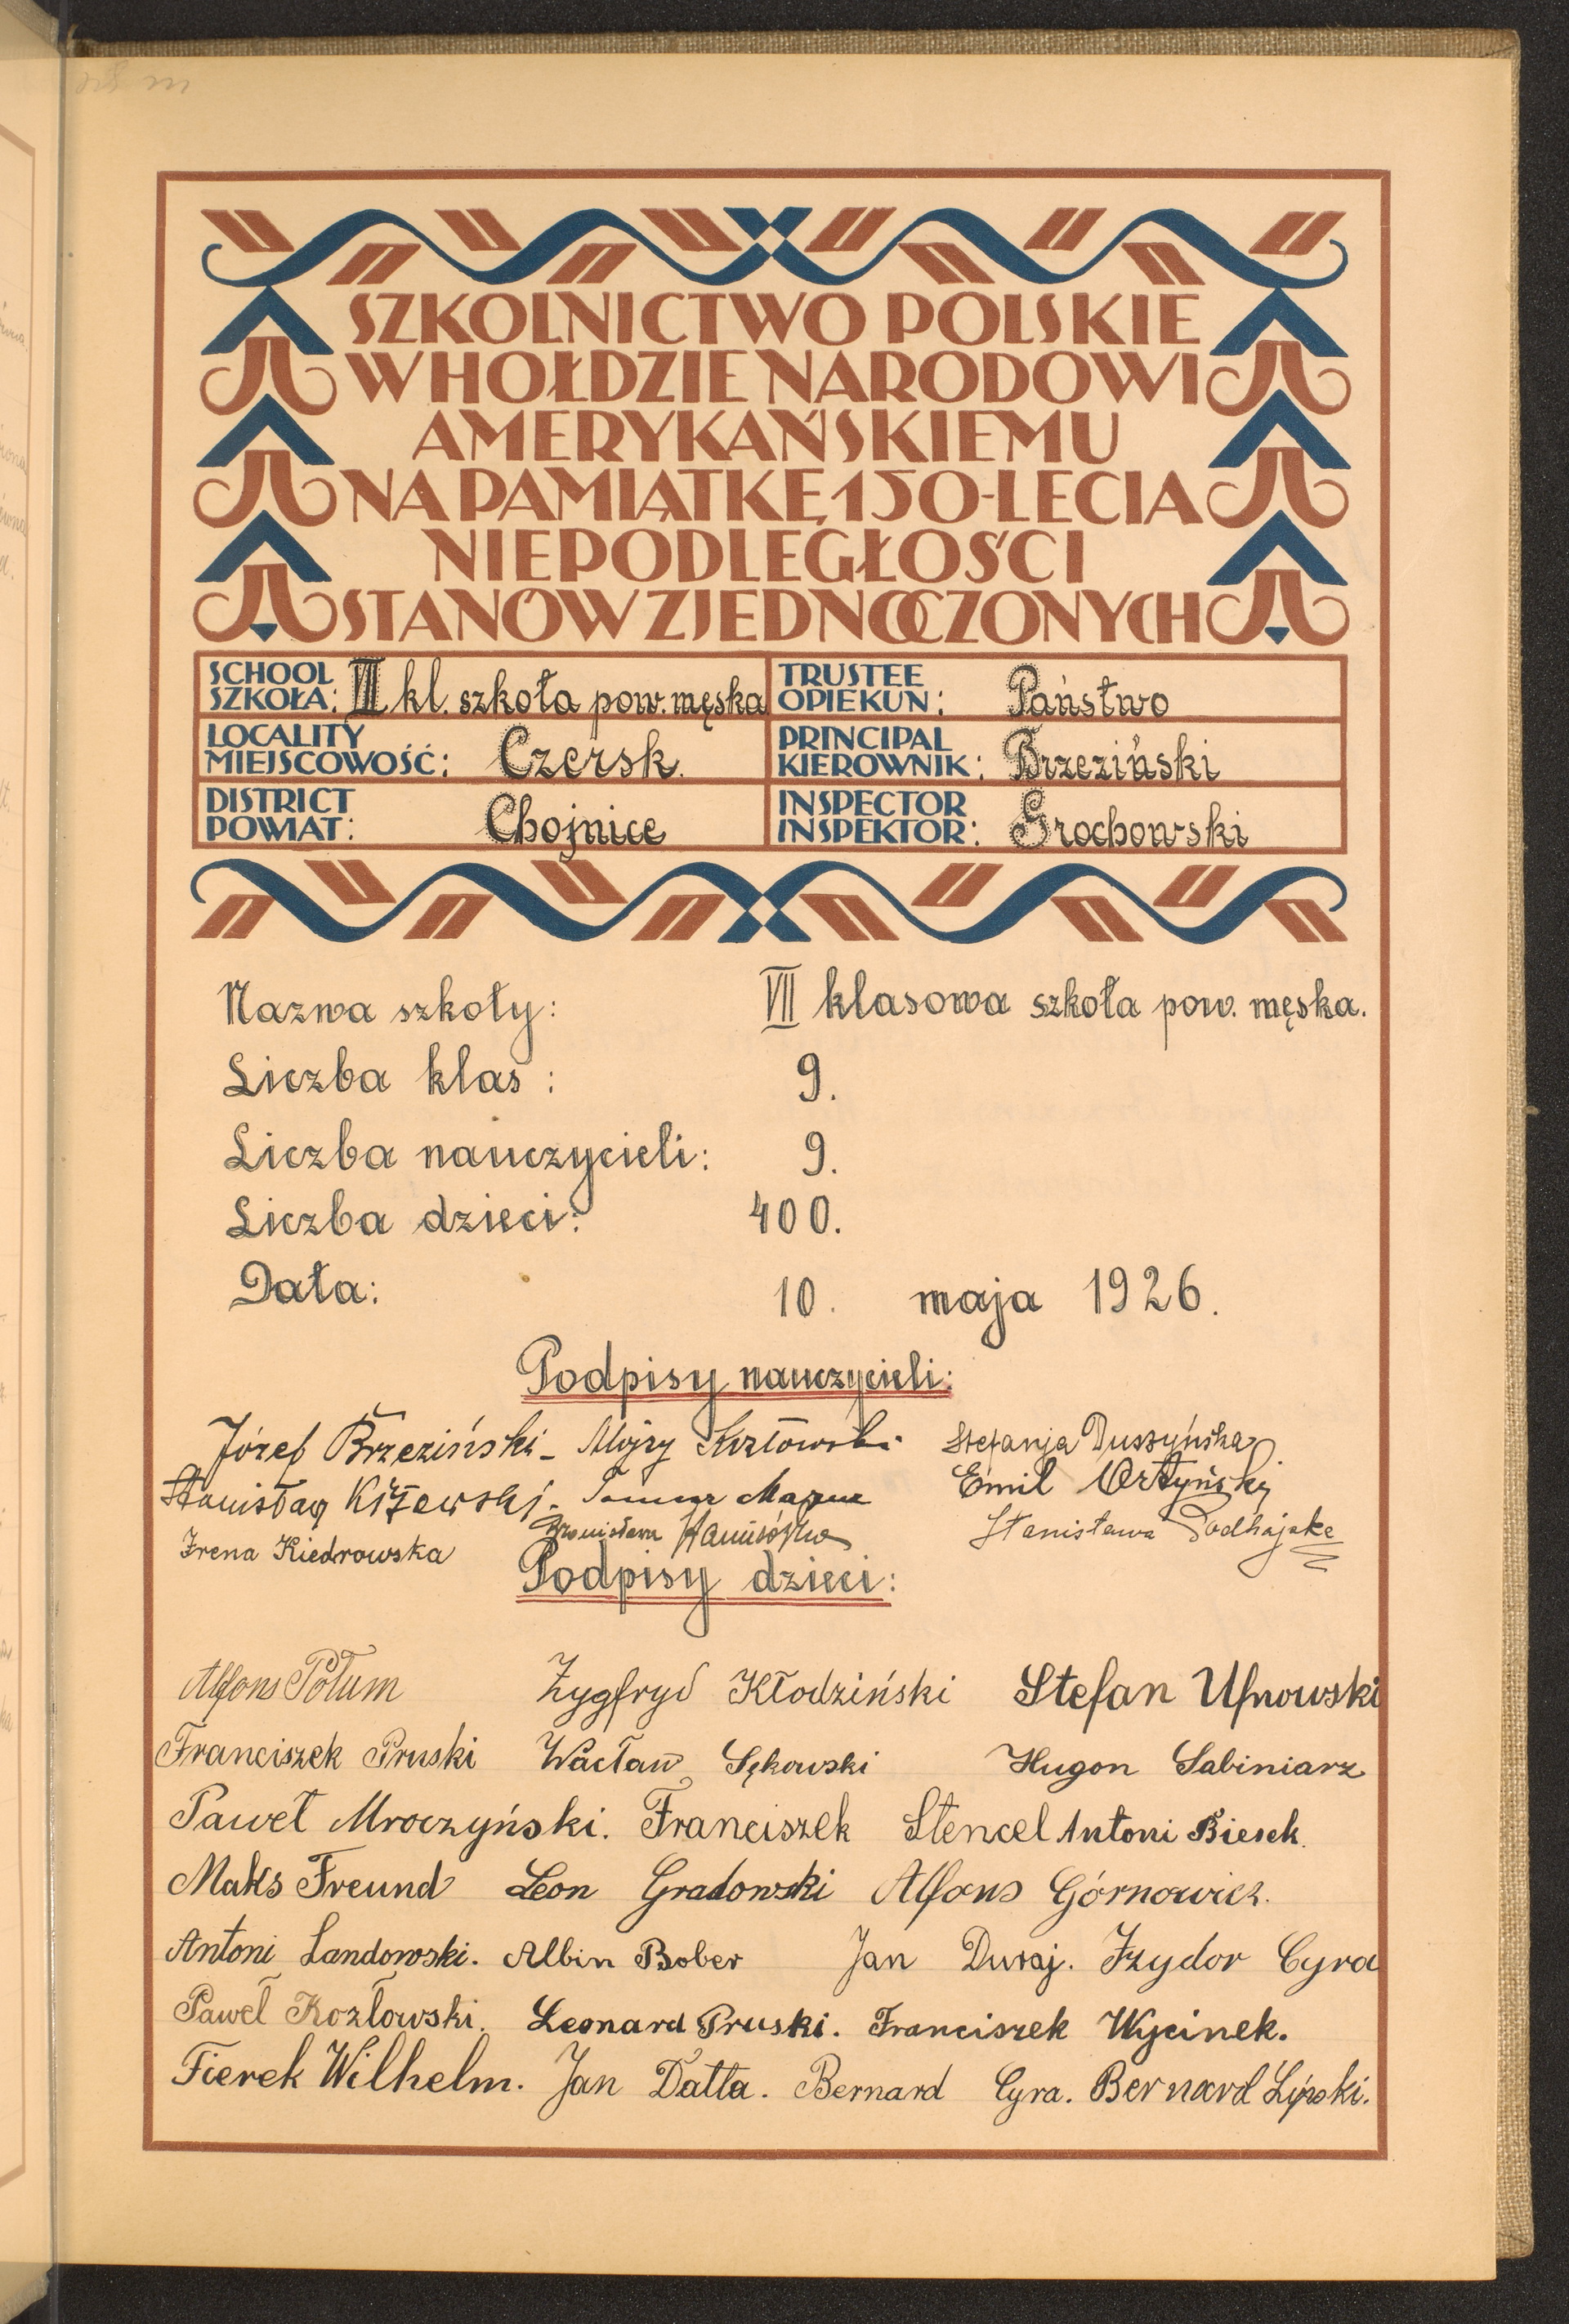 SZKOLNICTWO POLSKIE
W HOŁDZIE NARODOWI
AMERYKAŃSKIEMU
NA PAMIĄTKĘ 150-LECIA
NIEPODLEGŁOŚCI
STANÓW ZJEDNOCZONYCH
SCHOOL
SZKOŁA: VII kl. szkoła pow. męska
TRUSTEE
OPIEKUN: Państwo
LOCALITY
MIEJSCOWOŚĆ: Czersk.
PRINCIPAL
KIEROWNIK: Brzeziński
DISTRICT
POWIAT: Chojnice
INSPECTOR
INSPEKTOR: Grochowski
Nazwa szkoły: VII klasowa szkoła pow. męska.
Liczba klas: 9.
Liczba nauczycieli: 9.
Liczba dzieci: 400.
Data: 10. maja 1926.
Podpisy nauczycieli:
Józef Brzeziński - Alojzy Kozłowski Stefanja Duszyńska
Stanisław Kiżewski. Mazur Emil Ortyński
Irena Kiedrowska Bronisława Stanisława Podhajska
Podpisy dzieci:
Alfons Połum Zygfryd Kłodziński Stefan Ufnowski
Franciszek Pruski Wacław Sękowski Hugon Sabiniarz
Paweł Mroczyński. Franciszek Stencel Antoni Biesek.
Maks Freund Leon Gradowski Alfons Górnowicz.
Antoni Landowski. Albin Bober Jan Duraj. Izydor Cyra
Paweł Kozłowski. Leonard Pruski. Franciszek Wycinek.
Fierek Wilhelm. Jan Datta. Bernard Cyra. Bernard Lipski.